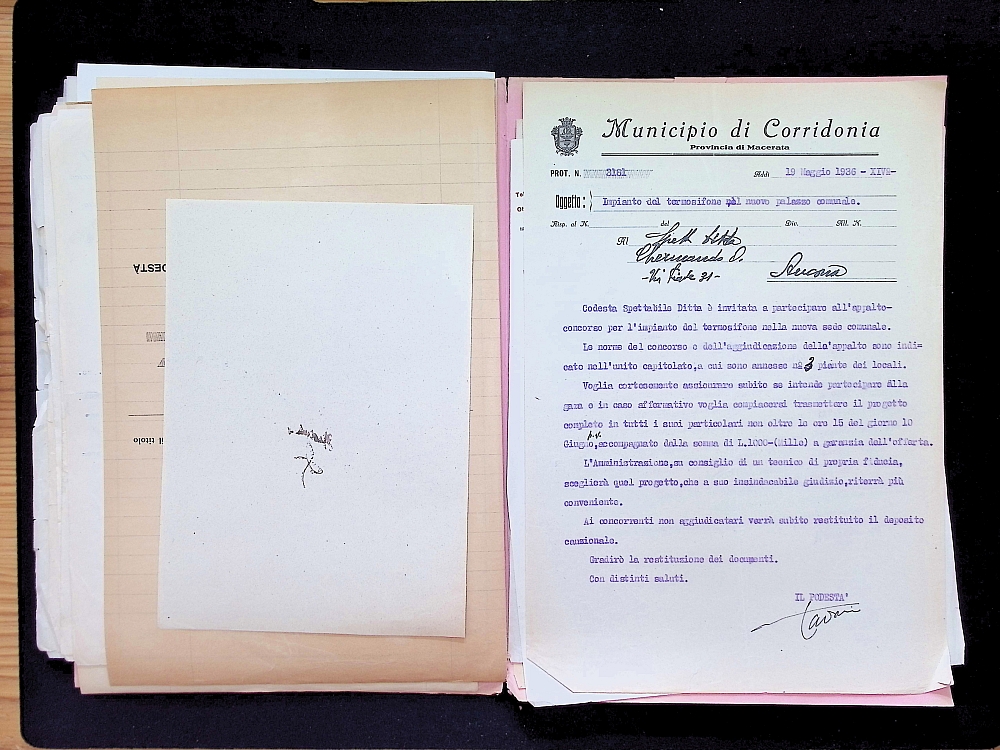 DESTÀ
il titolo
Municipio di Corridonia
Provincia di Macerata
PROT. N. 3181 Addì 19 Maggio 1936 - XIV=-
Oggetto: Impianto del termosifone nel nuovo palazzo comunale.
Risp. al N. del Div. All. N.
Al Spett. Ditta
D.
- Via 31 -
Ancona
Codesta Spettabile Ditta è invitata a partecipare all'appalto-
concorso per l'impianto del termosifone nella nuova sede comunale.
Le norme del concorso e dell'aggiudicazione della'appalto sono indi=
cate nell'unito capitolato,a cui sono annesse n° 3 piante dei locali.
Voglia cortesemente assicurare subito se intende partecipare alla
gara e in caso affermativo voglia compiacersi trasmettere il progetto
completo in tutti i suoi particolari non oltre le ore 15 del giorno 10
Giugno p.v. ,accompagnato dalla somma di L.1000-(Mille) a garanzia dell'offerta.
L'Amministrazione,su consiglio di un tecnico di propria fiducia,
sceglierà quel progetto,che a suo insindacabile giudizio,riterrà più
conveniente.
Ai concorrenti non aggiudicatari verrà subito restituito il deposito
cauzionale.
Gradirò la restituzione dei documenti.
Con distinti saluti.
IL PODESTA'